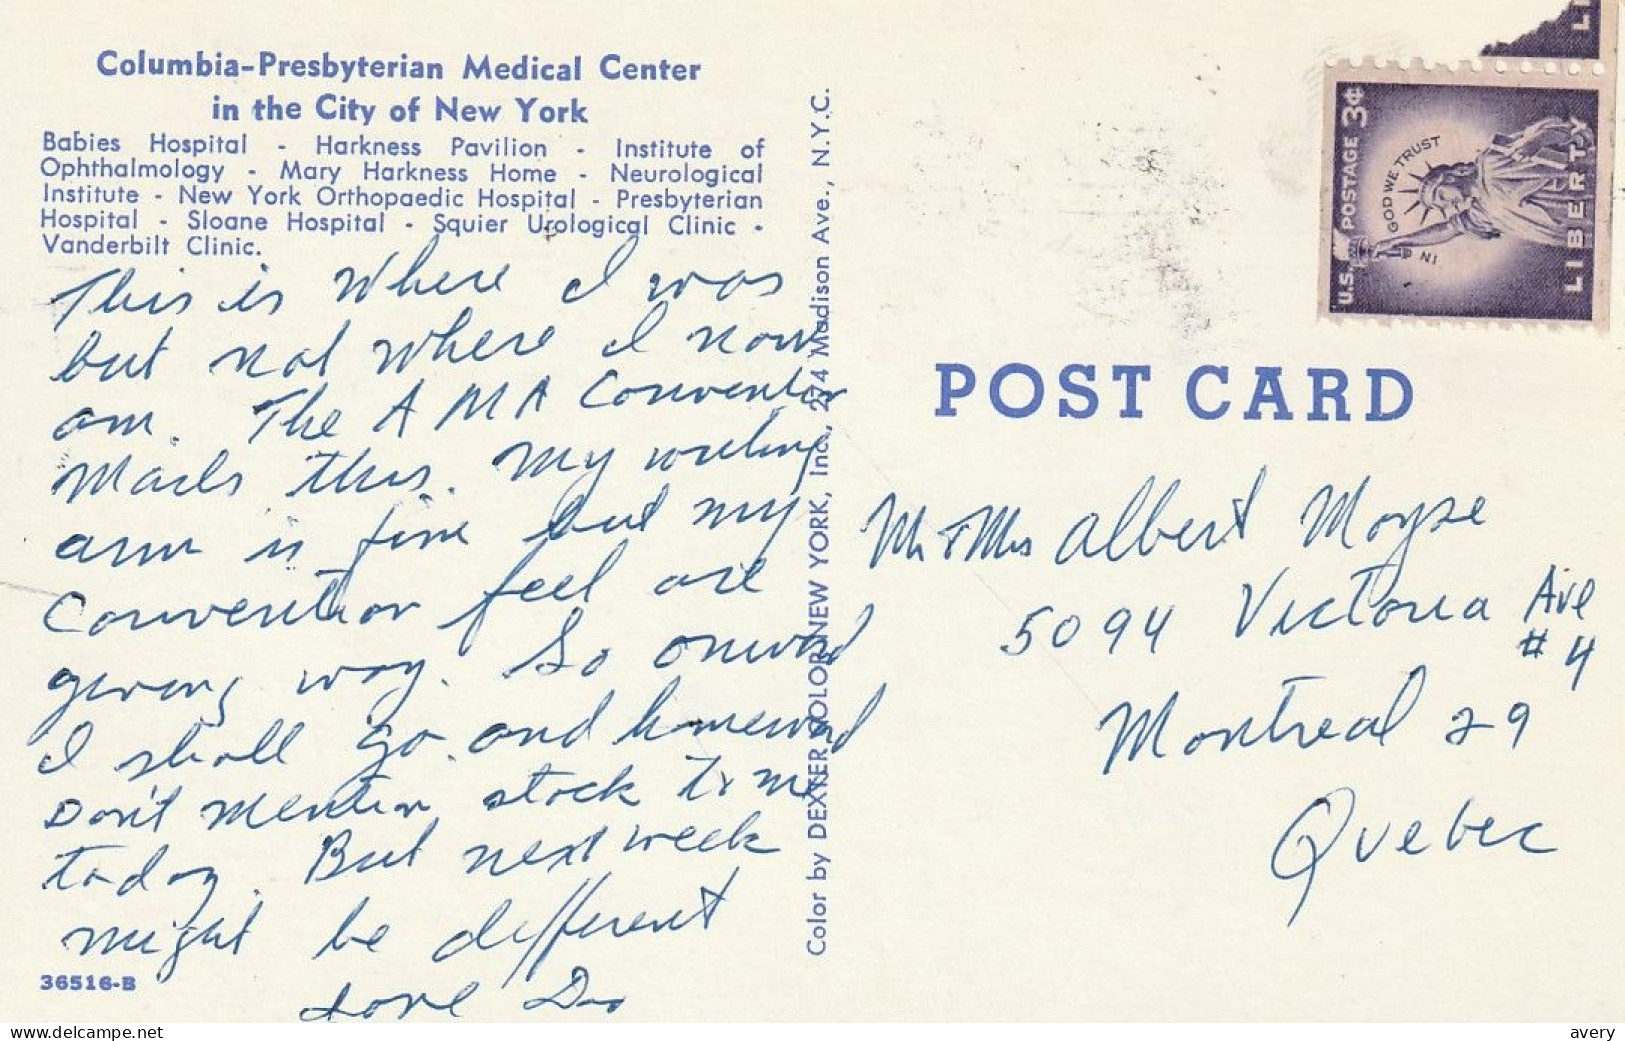 Columbia-Presbyterian Medical Center
in the City of New York
Babies Hospital - Harkness Pavilion - Institute of
Ophthalmology - Mary Harkness Home - Neurological
Institute - New York Orthopaedic Hospital - Presbyterian
Hospital - Sloane Hospital - Squier Urological Clinic -
Vanderbilt Clinic.
This is where I was
but not where I now
am. The AMA Convention
mails this. My writing
arm is fine but my
convention feel are
giving way. So onward
I shall go and homeward
Don't mention stock to me
today. But next week
might be different
Love
36516-B
Color by DEXTER COLOR NEW YORK, Inc., 274 Madison Ave., N.Y.C.
LI
U.S. POSTAGE 3¢
IN GOD WE TRUST
LIBERTY
POST CARD
Mr & Mrs Albert Moyse
5094 Victoria Ave
#4
Montreal 29
Quebec
www.delcampe.net
avery